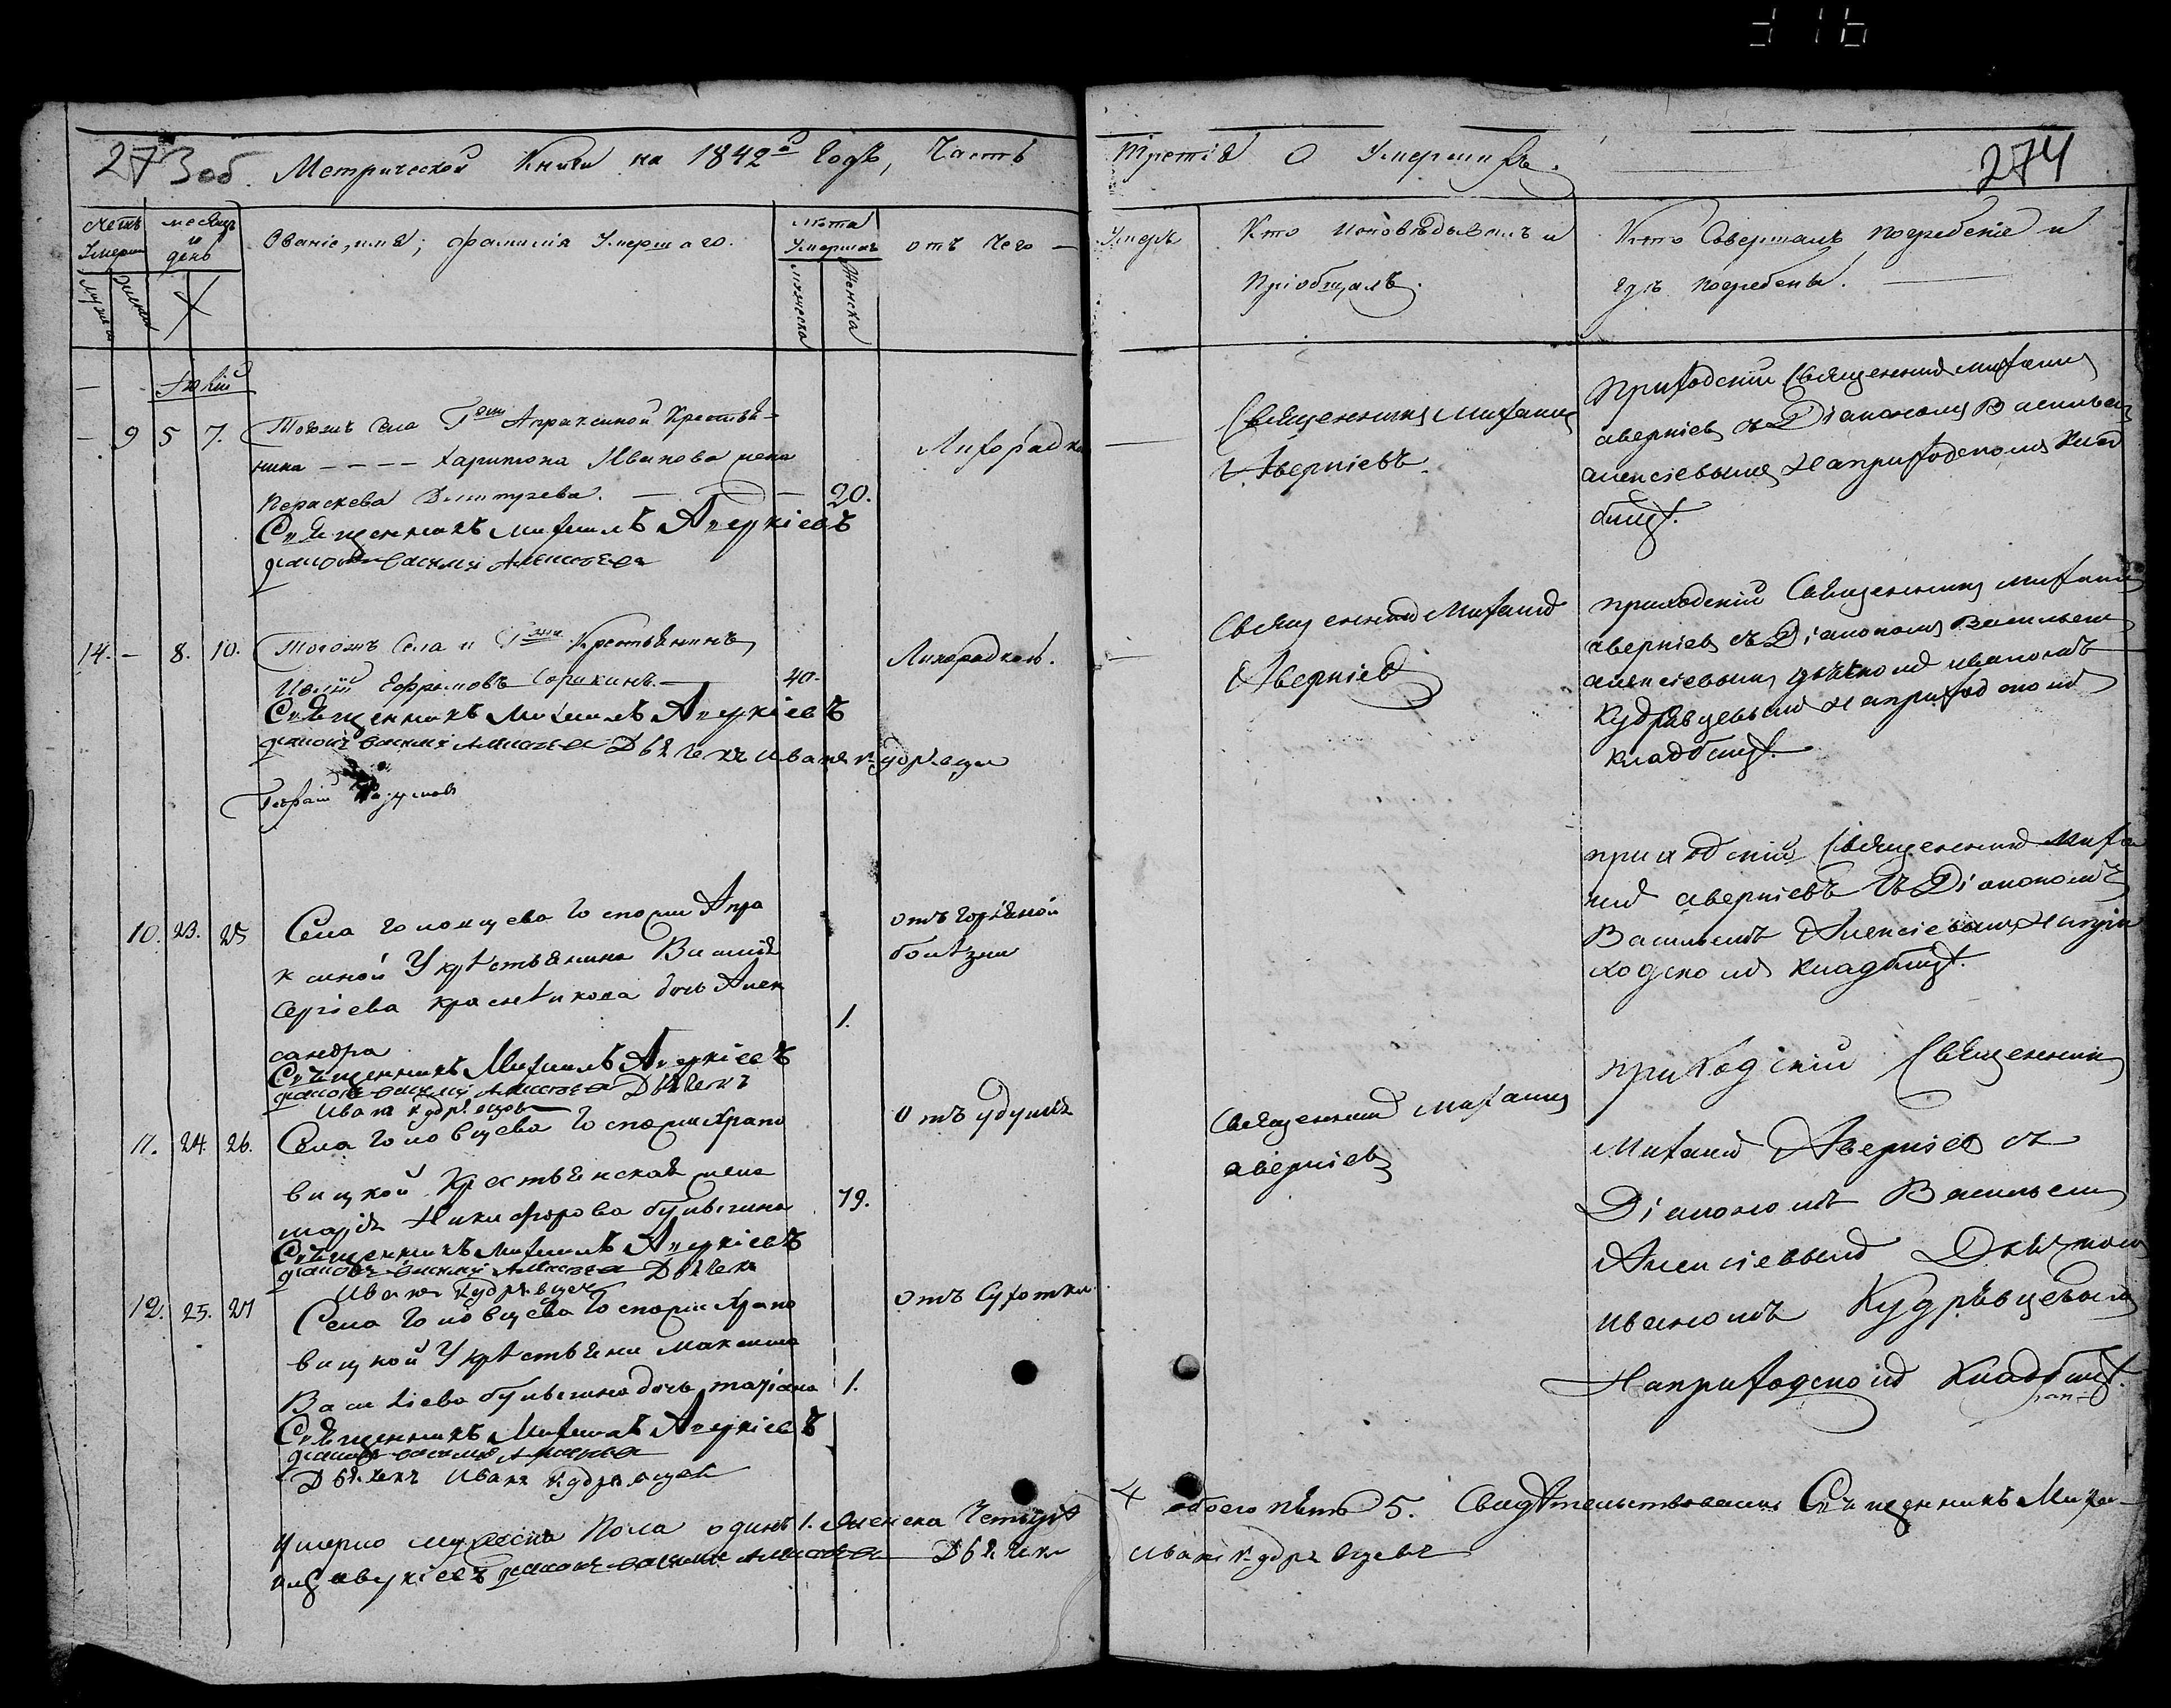 273 об. Метрической Книги на 1842й Годъ, Часть
Третія О Умершихъ.
274
Счетъ Умерш
месяцъ и день
Званіе, имя, фамилія Умершаго.
Лѣта Умершаго
отъ чего
Умеръ
Кто исповѣдывалъ и
Пріобщалъ.
Кто Совершалъ погребеніе и
гдѣ погребены.
Мужеска
Женска
Мужеска
Женска
Іюлій
9 5 7.
Тогожъ села Гжи Апраксиной Крестья-
нина Харитона Иванова жена
Параскева Дмитріева. 20.
Священникъ Михаилъ Аверкіевъ
діаконъ Василій Алексѣевъ
Лихорадки
Священникъ Михаилъ
Аверкіевъ.
Приходскій Священникъ Михаилъ
Аверкіевъ съ Діакономъ Васильемъ
Алексіевымъ На приходскомъ Клад
бищѣ.
14. – 8. 10.
Тогожъ Села и Гжи Крестьянинъ
Ефремовъ Сорикинъ. 40.
Священникъ Михаилъ Аверкіевъ
діаконъ Василій Алексѣевъ Дьячекъ Иванъ Кудрявцевъ
Лихорадкой.
Священникъ Михаилъ
Аверкіевъ
приходскій Священникъ Михаилъ
Аверкіевъ съ Діакономъ Васильемъ
Алексіевымъ дьячкомъ Иваномъ
Кудрявцевымъ На приходскомъ
Кладбищѣ.
10. 23. 25
Села Головщева Госпожи Апра
ксиной У крѣстьянина Василія
Сергіева Краснѣикова дочь Алек
сандра 1.
Священникъ Михаилъ Аверкіевъ
діаконъ Василій Алексѣевъ Дьячекъ
Иванъ Кудрявцовъ
отъ горячной
болѣзни
приходскій Священникъ Миха
илъ Аверкіевъ съ Діакономъ
Васильемъ Алексіевымъ На при
ходскомъ Кладбищѣ.
11. 24. 26.
Села Головщева Госпожи Храпо
вицкой Крестьянская жена
Марія Никифорова 79.
Священникъ Михаилъ Аверкіевъ
діаконъ Василій Алексѣевъ Дьячекъ
Иванъ Кудрявцевъ
Отъ удушья
Священникъ Михаилъ
Аверкіевъ
приходскій Священникъ
Михаилъ Аверкіевъ съ
Діакономъ Васильемъ
Алексіевымъ Дьячкомъ
Иваномъ Кудрявцевымъ
На приходскомъ Кладбищѣ.
12. 25. 27
Села Головщева Госпожи Храпо
вицкой У крѣстьянина Максима
Васильева дочь Татіана 1.
Священникъ Михаилъ Аверкіевъ
діаконъ Василій Алексѣевъ
Дьячекъ Иванъ Кудрявцевъ
отъ Сухотки
Умерло мужеска Пола одинъ 1. Женска Четыре
4 обоего пять 5. Свидѣтельствовали Священникъ Миха-
илъ Аверкіевъ діаконъ Василій Алексѣевъ Дьячекъ
Иванъ Кудрявцевъ